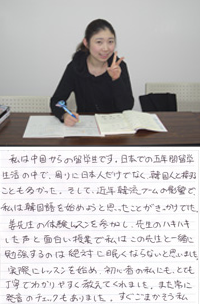 私は中国からの留学生です。日本での五年間留学
生活の中で、周りに日本人だけでなく、韓国人と接す
ることも多かった。そして、近年韓流ブームの影響で
私は韓国語を始めようと思ったことがきっかけでした。
姜先生の体験レッスンを参加し、先生のハキハキ
した声と面白い授業で私はこの先生と一緒に
勉強するのは絶対に眠くならないと思いました。
実際にレッスンを始め、初心者の私にも、とても
丁寧でわかりやすく教えてくれました。また常に
発音のチェックもありました。すぐごまかそう私